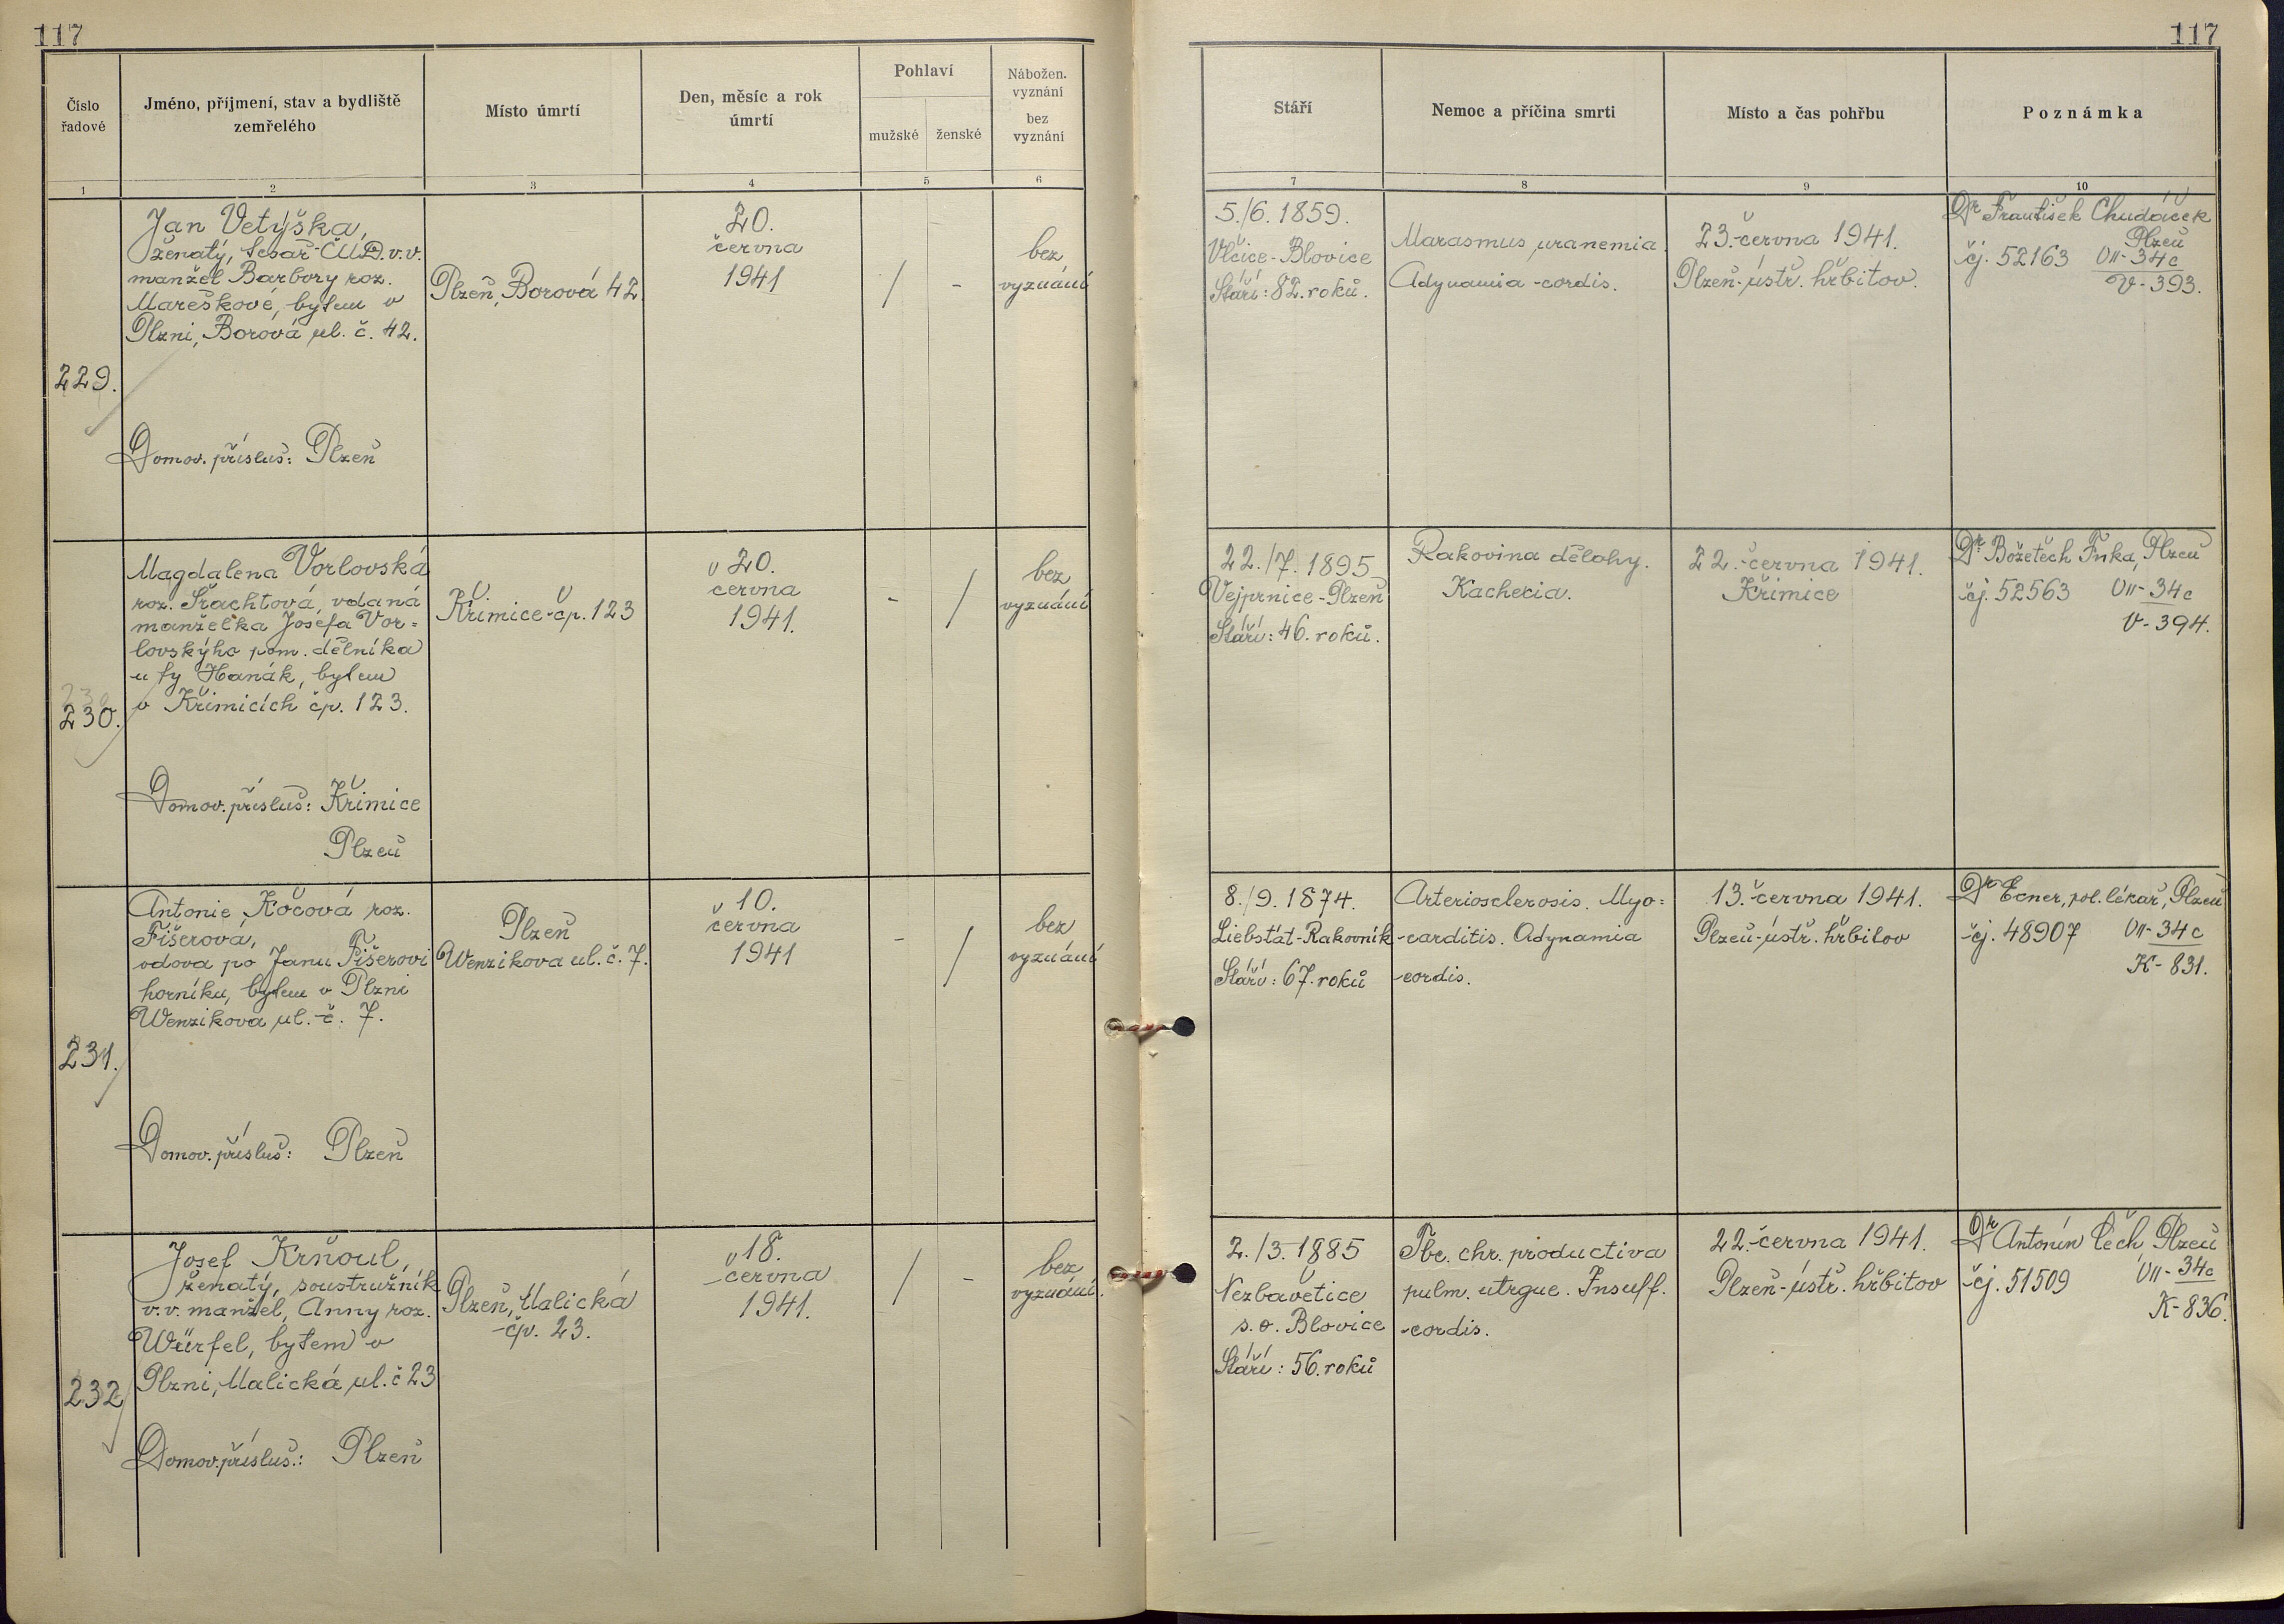 117
117
Číslo řadové
Jméno, příjmení, stav a bydliště zemřelého
Místo úmrtí
Den, měsíc a rok úmrtí
Pohlaví
mužské
ženské
Nábožen. vyznání
bez vyznání
Stáří
Nemoc a příčina smrti
Místo a čas pohřbu
Poznámka
1
2
3
4
5
6
7
8
9
10
229.
Jan Vetýška,
ženatý, tesař ČMD. v.v.
manžel Barbory roz.
Mareškové, bytem v
Plzni, Borová ul. č. 42.
Domov. přísluš: Plzeň
Plzeň, Borová 42.
20.
června
1941
/
-
bez
vyznání
5./6. 1859.
Vlčice-Blovice
Stáří: 82. roků.
Marasmus uranemia.
Adynamia-cordis.
23. června 1941.
Plzeň-ústř. hřbitov.
Dr František Chudáček
Plzeň
čj. 52163 VII-34c
V-393.
230.
Magdalena Vorlovská
roz. Šlachtová, vdaná
manželka Josefa Vor=
lovskýho pom. dělníka
u fy Hanák, bytem
v Křimicích čp. 123.
Domov. přísluš: Křimice
Plzeň
Křimice-čp. 123
20.
června
1941.
-
/
bez
vyznání
22./7. 1895
Vejprnice-Plzeň
Stáří: 46. roků.
Rakovina dělohy.
Kachecia.
22. června 1941.
Křimice
Dr Božetěch Fnka, Plzeň
čj. 52563 VII-34c
V-394.
231.
Antonie Kočová roz.
Fišerová,
vdova po Janu Fišerovi
horníku, bytem v Plzni
Wenzikova ul. č. 7.
Domov. přísluš: Plzeň
Plzeň
Wenzikova ul. č. 7.
10.
června
1941
-
/
bez
vyznání
8./9. 1874.
Liebstát-Rakovník
Stáří: 67. roků
Arteriosclerosis. Myo=
-carditis. Adynamia
-cordis.
13. června 1941.
Plzeň-ústř. hřbitov
Dr Ecner, pol. lékař, Plzeň
čj. 48907 VII-34c
K-831.
232
Josef Krňoul,
ženatý, soustružník
v.v. manžel, Anny roz.
Würfel, bytem v
Plzni, Malická ul. č 23
Domov. přísluš.: Plzeň
Plzeň, Malická
-čp. 23.
18.
června
1941.
/
-
bez
vyznání.
2./3. 1885
Nezbavětice
s. o. Blovice
Stáří: 56. roků
Tbc. chr. productiva
pulm. utrque. Insuff.
-cordis.
22. června 1941.
Plzeň-ústř. hřbitov
Dr Antonín Čech Plzeň
čj. 51509 VII-34c
K-836.